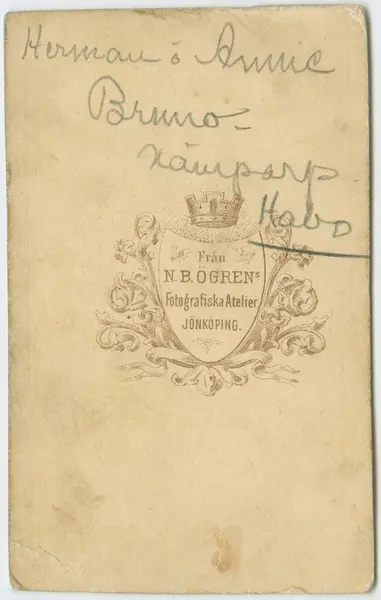 Herman o Annie
Bruno-
Kämparp
Habo
Från
N. B. ÖGRENs
Fotografiska Atelier
JÖNKÖPING.